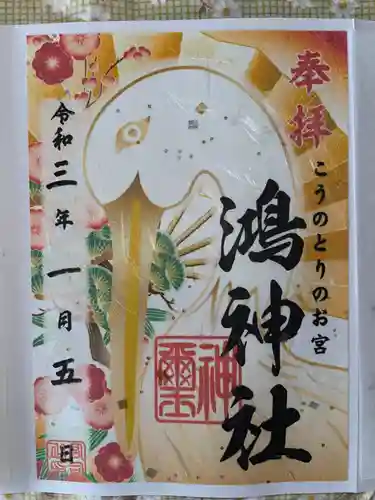 奉拝
こうのとりのお宮
鴻神社
神璽
令和三年一月五日